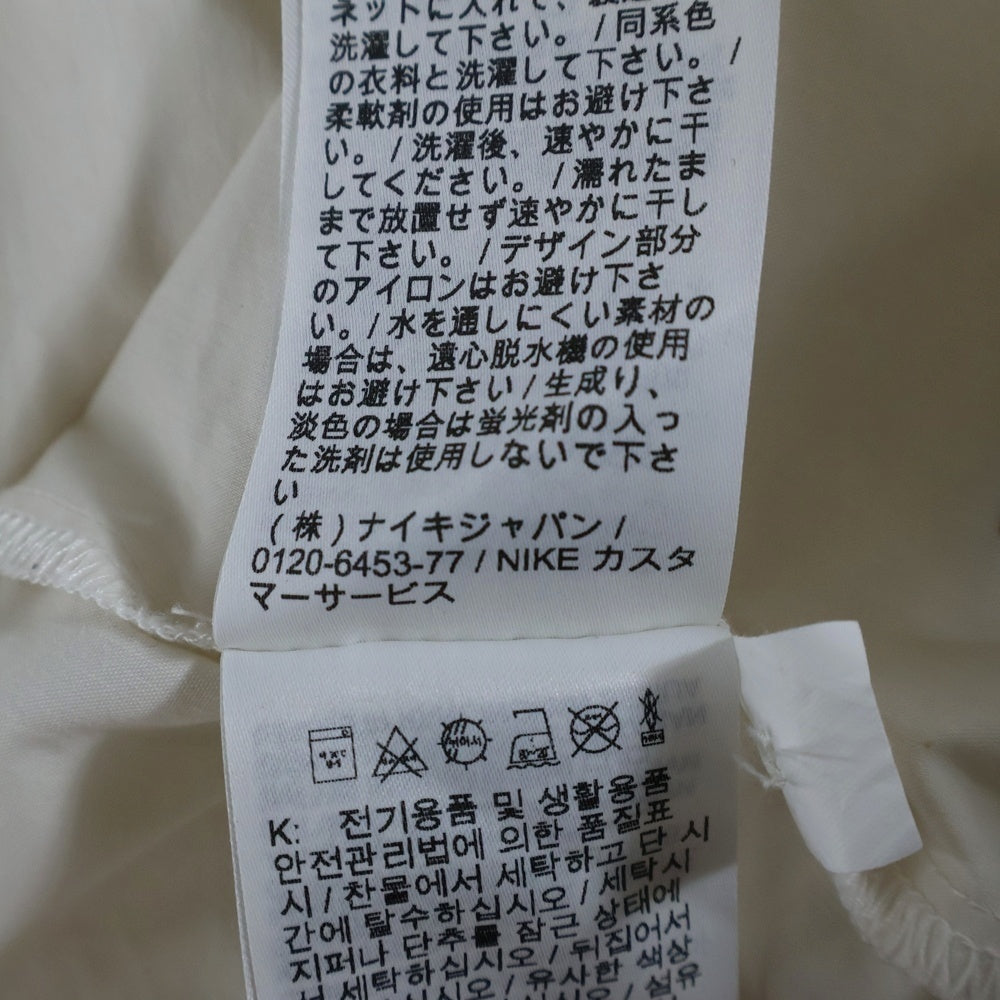 ネットに入れて、
洗濯して下さい。/同系色
の衣料と洗濯して下さい。/
柔軟剤の使用はお避け下さ
い。/洗濯後、速やかに干
してください。/濡れたま
まで放置せず速やかに干し
て下さい。/デザイン部分
のアイロンはお避け下さ
い。/水を通しにくい素材の
場合は、遠心脱水機の使用
はお避け下さい/生成り、
淡色の場合は蛍光剤の入っ
た洗剤は使用しないで下さ
い
(株)ナイキジャパン/
0120-6453-77 / NIKE カスタ
マーサービス
K: 전기용품 및 생활용품
안전관리법에 의한 품질표
시/찬물에서 세탁하고 단 시
간에 탈수하십시오/세탁시
지퍼나 단추를 잠근 상태에
서 세탁하십시오/뒤집어서
세탁하십시오/유사한 색상